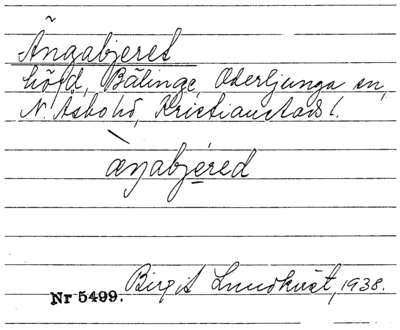 Ängabjeret
höjd, Bälinge, Oderljunga sn,
N. Åsbo hd, Kristianstads l.
æŋabjéred
Birgit Lundkvist, 1938.
Nr 5499.